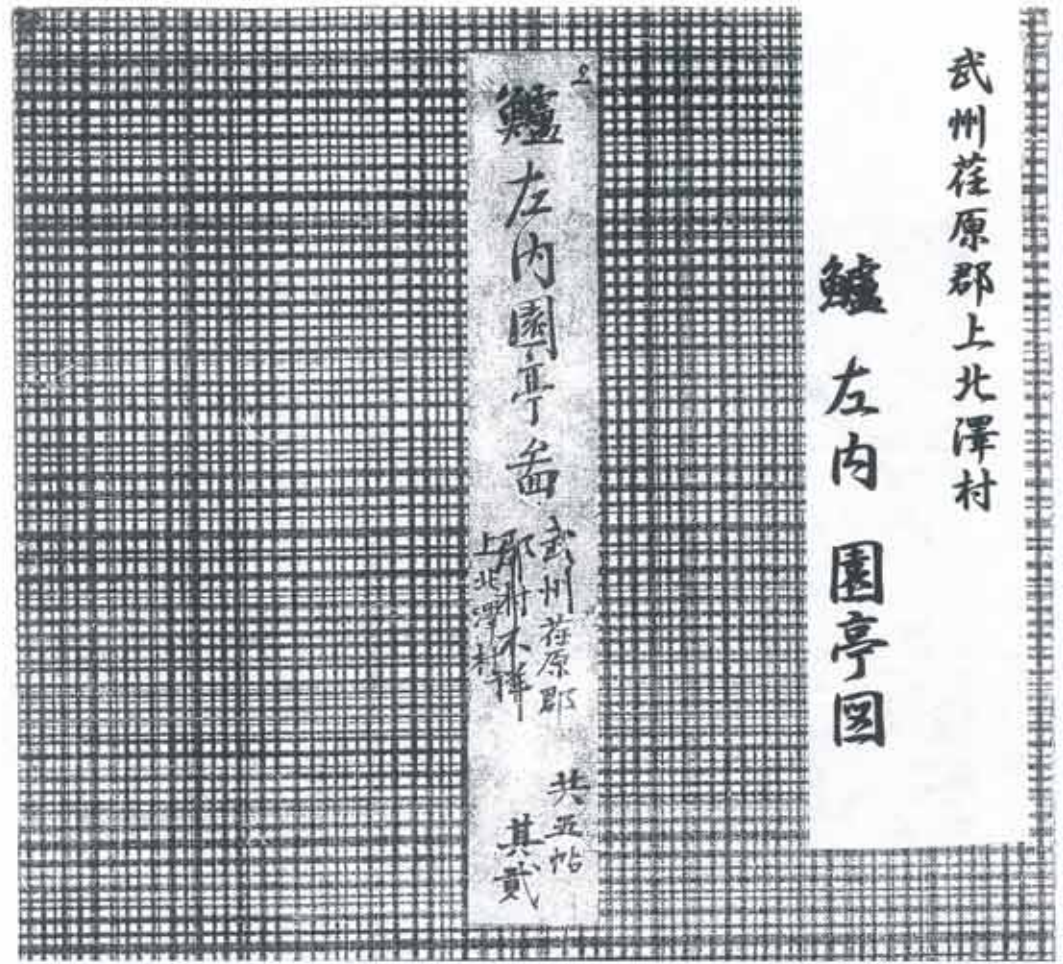 武州荏原郡上北澤村
鱸 左内 園亭図
2
鱸左内園亭啚
武州荏原郡
郡村不詳
上北澤村
共五帖
其貳